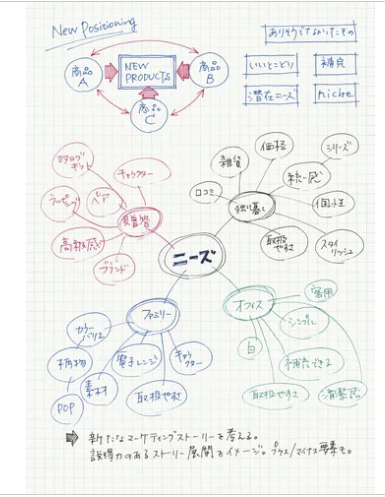 New Positioning
ありそうでなかったもの
商品
A
NEW
PRODUCTS
商品
B
商品
C
いいとこどり
補完
潜在ニーズ
niche
カタログ
ギフト
キャラクター
ラッピング
ペア
高級感
ブランド
雑貨
価格
シリーズ
口コミ
統一感
独り暮し
個性
取扱
やすさ
スタイ
リッシュ
ニーズ
ファミリー
カラー
柄物
POP
素材
電子レンジ
取扱やすさ
キャラ
クター
オフィス
客用
シンプル
白
補充できる
取扱やすさ
清潔感
新たなマーケティングストーリーを考える。
説得力のあるストーリー展開をイメージ。プラス/マイナス要素も。